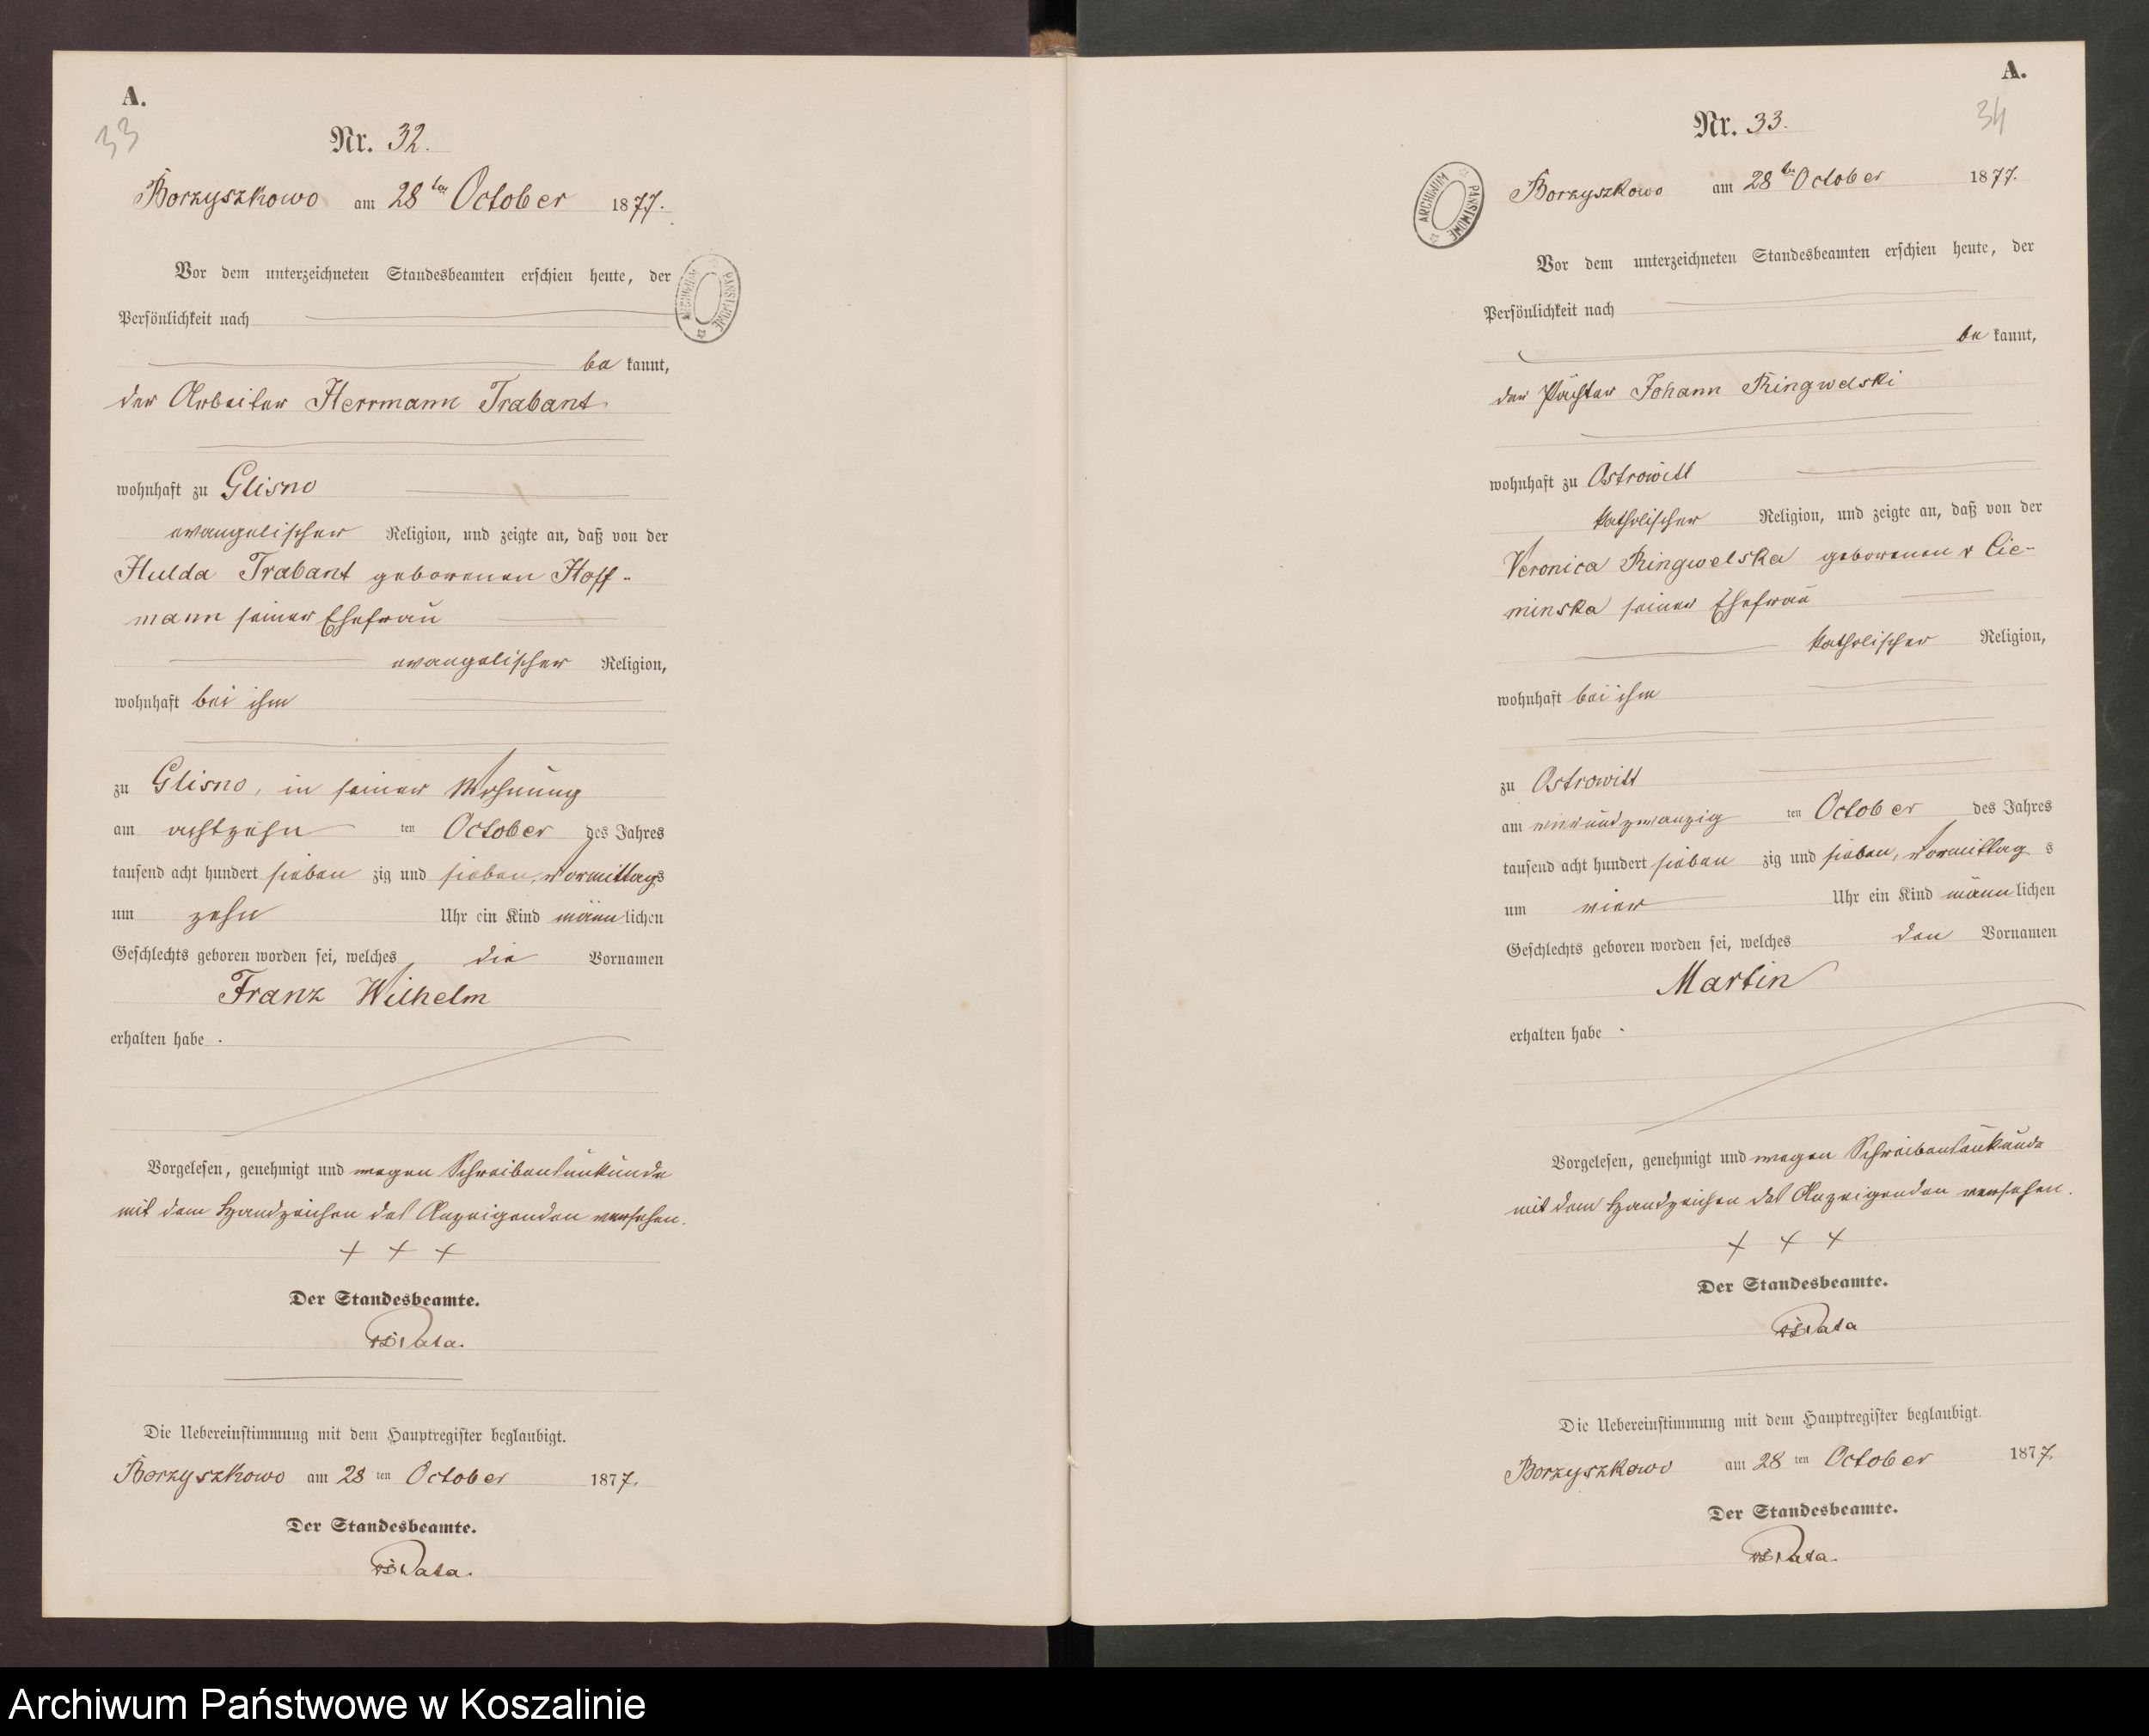 A.
33
Nr. 32.
Borzyszkowo am 28ten October 1877.
Vor dem unterzeichneten Standesbeamten erschien heute, der
Persönlichkeit nach
be kannt,
der Arbeiter Herrmann Trabant
wohnhaft zu Glisno
evangelischer Religion, und zeigte an, daß von der
Hulda Trabant geborenen Hoff-
mann seiner Ehefrau
evangelischer Religion,
wohnhaft bei ihm
zu Glisno, in seiner Wohnung
am achtzehn ten October des Jahres
tausend acht hundert sieben zig und sieben, Vormittags
um zehn Uhr ein Kind männlichen
Geschlechts geboren worden sei, welches die Vornamen
Franz Wilhelm
erhalten habe.
Vorgelesen, genehmigt und wegen Schreibensunkunde
mit dem Handzeichen des Anzeigenden versehen.
+ + +
Der Standesbeamte.
Die Uebereinstimmung mit dem Hauptregister beglaubigt.
Borzyszkowo am 28 ten October 1877.
Der Standesbeamte.
A.
34
Nr. 33.
ARCHIWUM PAŃSTWOWE
Borzyszkowo am 28ten October 1877.
Vor dem unterzeichneten Standesbeamten erschien heute, der
Persönlichkeit nach
be kannt,
der Pächter Johann Ringwelski
wohnhaft zu Ostrowitt
katholischer Religion, und zeigte an, daß von der
Veronica Ringwelska geborenen v Cie-
minska seiner Ehefrau
katholischer Religion,
wohnhaft bei ihm
zu Ostrowitt
am vierundzwanzig ten October des Jahres
tausend acht hundert sieben zig und sieben, Vormittag s
um vier Uhr ein Kind männlichen
Geschlechts geboren worden sei, welches den Vornamen
Martin
erhalten habe.
Vorgelesen, genehmigt und wegen Schreibensunkunde
mit dem Handzeichen des Anzeigenden versehen.
+ + +
Der Standesbeamte.
Die Uebereinstimmung mit dem Hauptregister beglaubigt.
Borzyszkowo am 28 ten October 1877.
Der Standesbeamte.
Archiwum Państwowe w Koszalinie